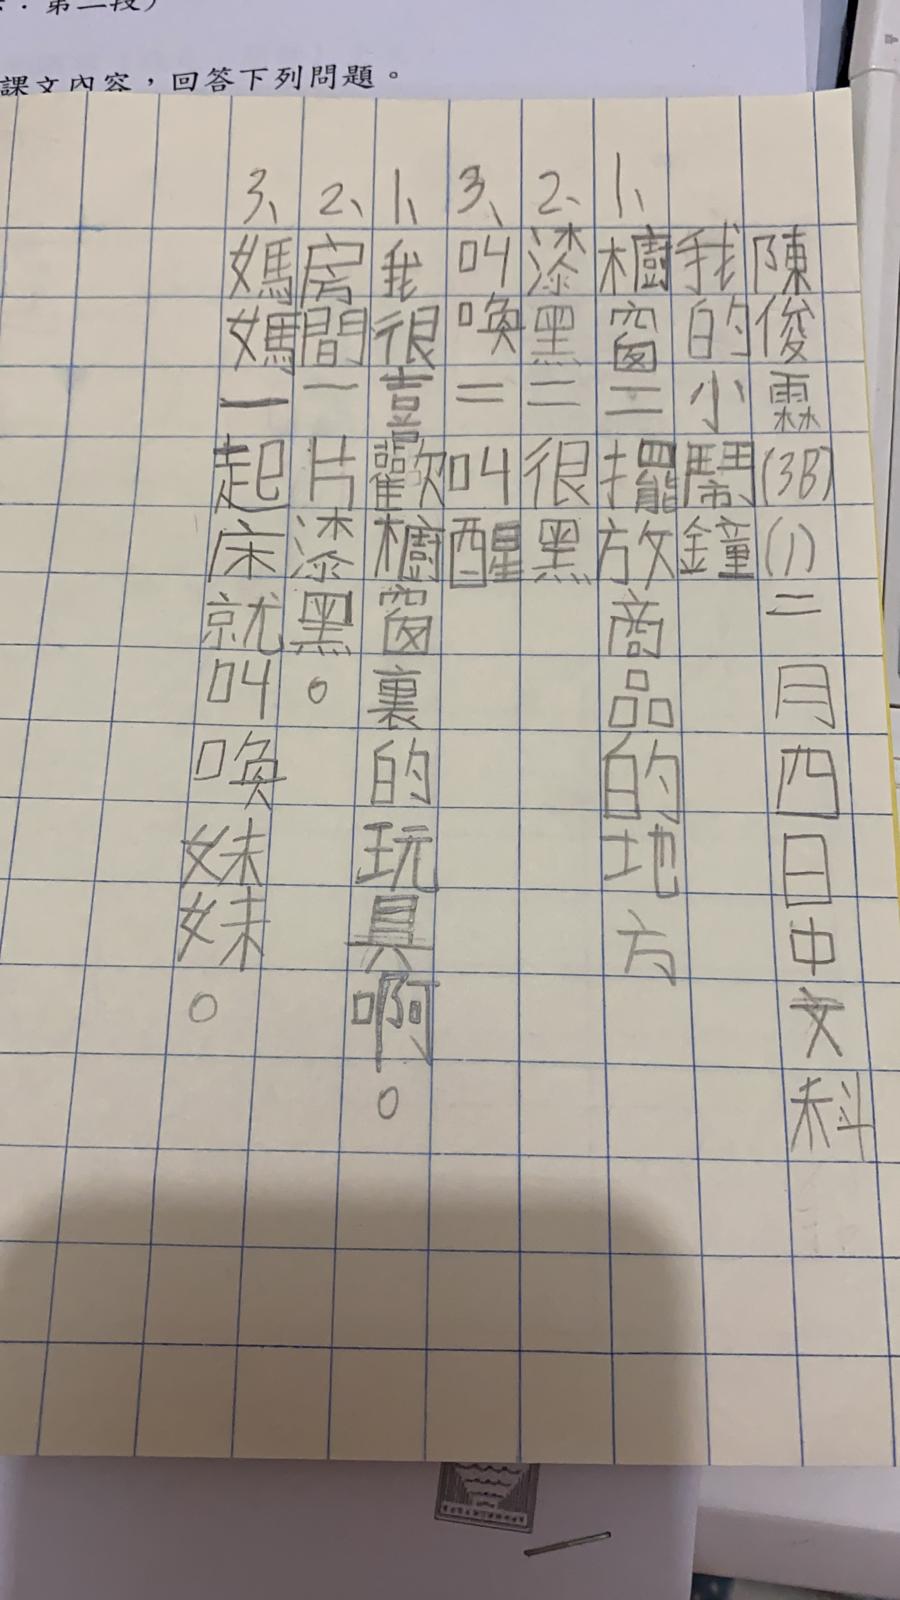 第二段）
課文內容，回答下列問題。
陳俊霖(3B)(1)二月四日中文科
我的小鬧鐘
1、櫥窗=擺放商品的地方
2、漆黑=很黑
3、叫喚=叫醒
1、我很喜歡櫥窗裏的玩具啊。
2、房間一片漆黑。
3、媽媽一起床就叫喚妹妹。